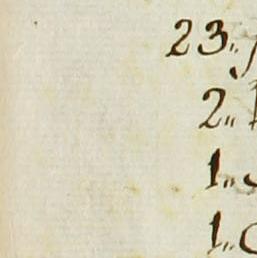 23"
2"
1"
1"